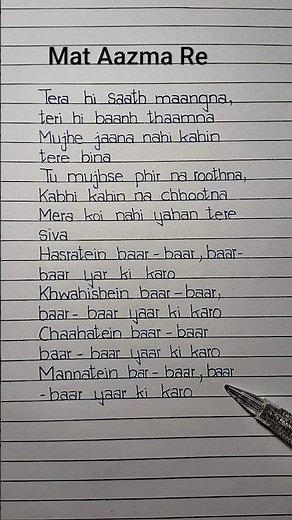 Mat Aazma Re
Tera hi saath maangna,
teri hi baanh thaamna
Mujhe jaana nahi kahin
tere bina
Tu mujhse phir na roothna,
Kabhi kahin na chhootna
Mera koi nahi yahan tere
siva
Hasratein baar-baar, baar-
baar yar ki karo
Khwahishein baar-baar,
baar-baar yaar ki karo
Chaahatein baar-baar
baar-baar yaar ki karo
Mannatein bar-baar, baar
-baar yaar ki karo